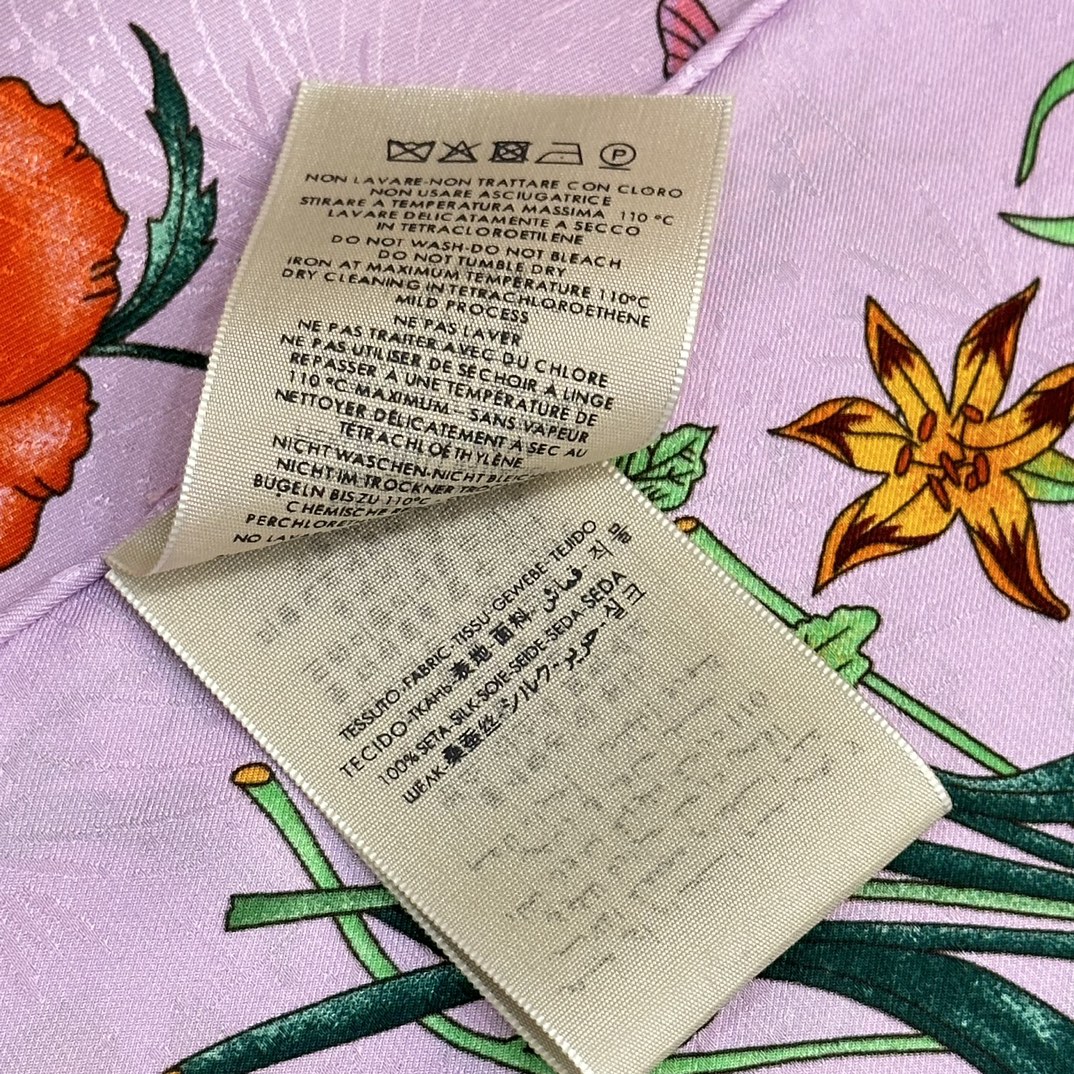 P
NON LAVARE-NON TRATTARE CON CLORO
NON USARE ASCIUGATRICE
STIRARE A TEMPERATURA MASSIMA 110 °C
LAVARE DELICATAMENTE A SECCO
IN TETRACLOROETILENE
DO NOT WASH-DO NOT BLEACH
DO NOT TUMBLE DRY
IRON AT MAXIMUM TEMPERATURE 110°C
DRY CLEANING IN TETRACHLOROETHENE
MILD PROCESS
NE PAS LAVER
NE PAS TRAITER AVEC DU CHLORE
NE PAS UTILISER DE SÉCHOIR À LINGE
REPASSER À UNE TEMPÉRATURE DE
110 °C MAXIMUM - SANS VAPEUR
NETTOYER DÉLICATEMENT A SEC AU
TÉTRACHLOÉTHYLÈNE
NICHT WASCHEN-NICHT
NICHT IM TROCKNER
BÜGELN BIS ZU 110°C
CHEMISCHE
NO
TESSUTO-FABRIC-TISSU-GEWEBE-TEJIDO
TECIDO-ТКАНЬ-表地-面料-قماش-직물
100% SETA-SILK-SOIE-SEIDE-SEDA-SEDA
ШЕЛК-桑蚕丝-シルク-حرير-실크